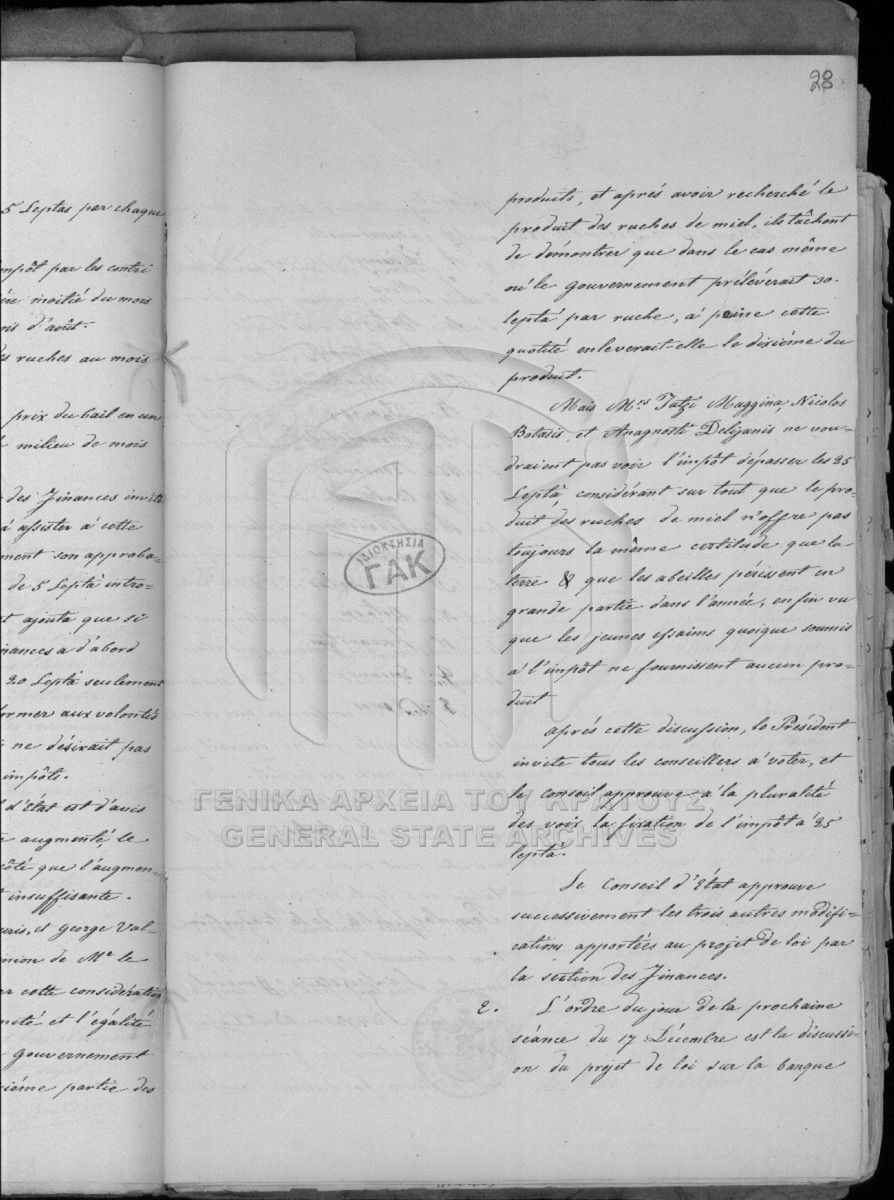 28
5 Leptas par chaque
impôt par les contri
moitié du mois
d'août.
ruches au mois
prix du bail en un
milieu de mois
des Finances invite
à assister à cette
son approba-
de 5 Leptà intro-
ajouta que si
a d'abord
20 Leptà seulement
aux volontés
ne désirait pas
impôts.
d'État est d'avis
augmenté, le
que l'augmen-
insuffisante.
et George Val-
de Mr le
cette considération
et l'égalité
gouvernement
partie des
produits, et aprés avoir recherché le
produit des ruches de miel, ils tâchent
de démontrer que dans le cas même
où le gouvernement préléverait 50.
leptà par ruche, à peine cette
quotité enleverait-elle le dixiéme du
produit.
Mais Mrs Tatzi Maggina, Nicolas
Botasis, et Anagnosti Delijanis ne vou-
draient pas voir l'impôt dépasser les 25
Leptà, considérant sur tout que le pro-
duit des ruches de miel n'offre pas
toujours la même certitude que la
terre & que les abeilles périssent en
grande partie dans l'année, enfin vu
que les jeunes essaims quoique soumis
à l'impôt ne fournissent aucun pro-
duit
aprés cette discussion, le Président
invite tous les conseillers à voter, et
le conseil approuve à la pluralité
des voix la fixation de l'impôt à 25
leptà.
Le Conseil d'État approuve
successivement les trois autres modifi-
cations apportées au projet de loi par
la section des Finances.
2. L'ordre du jour de la prochaine
séance du 17 Décembre est la discussi-
on du projet de loi sur la banque
ΙΔΙΟΚΤΗΣΙΑ
ΓΑΚ
ΓΕΝΙΚΑ ΑΡΧΕΙΑ ΤΟΥ ΚΡΑΤΟΥΣ
GENERAL STATE ARCHIVES